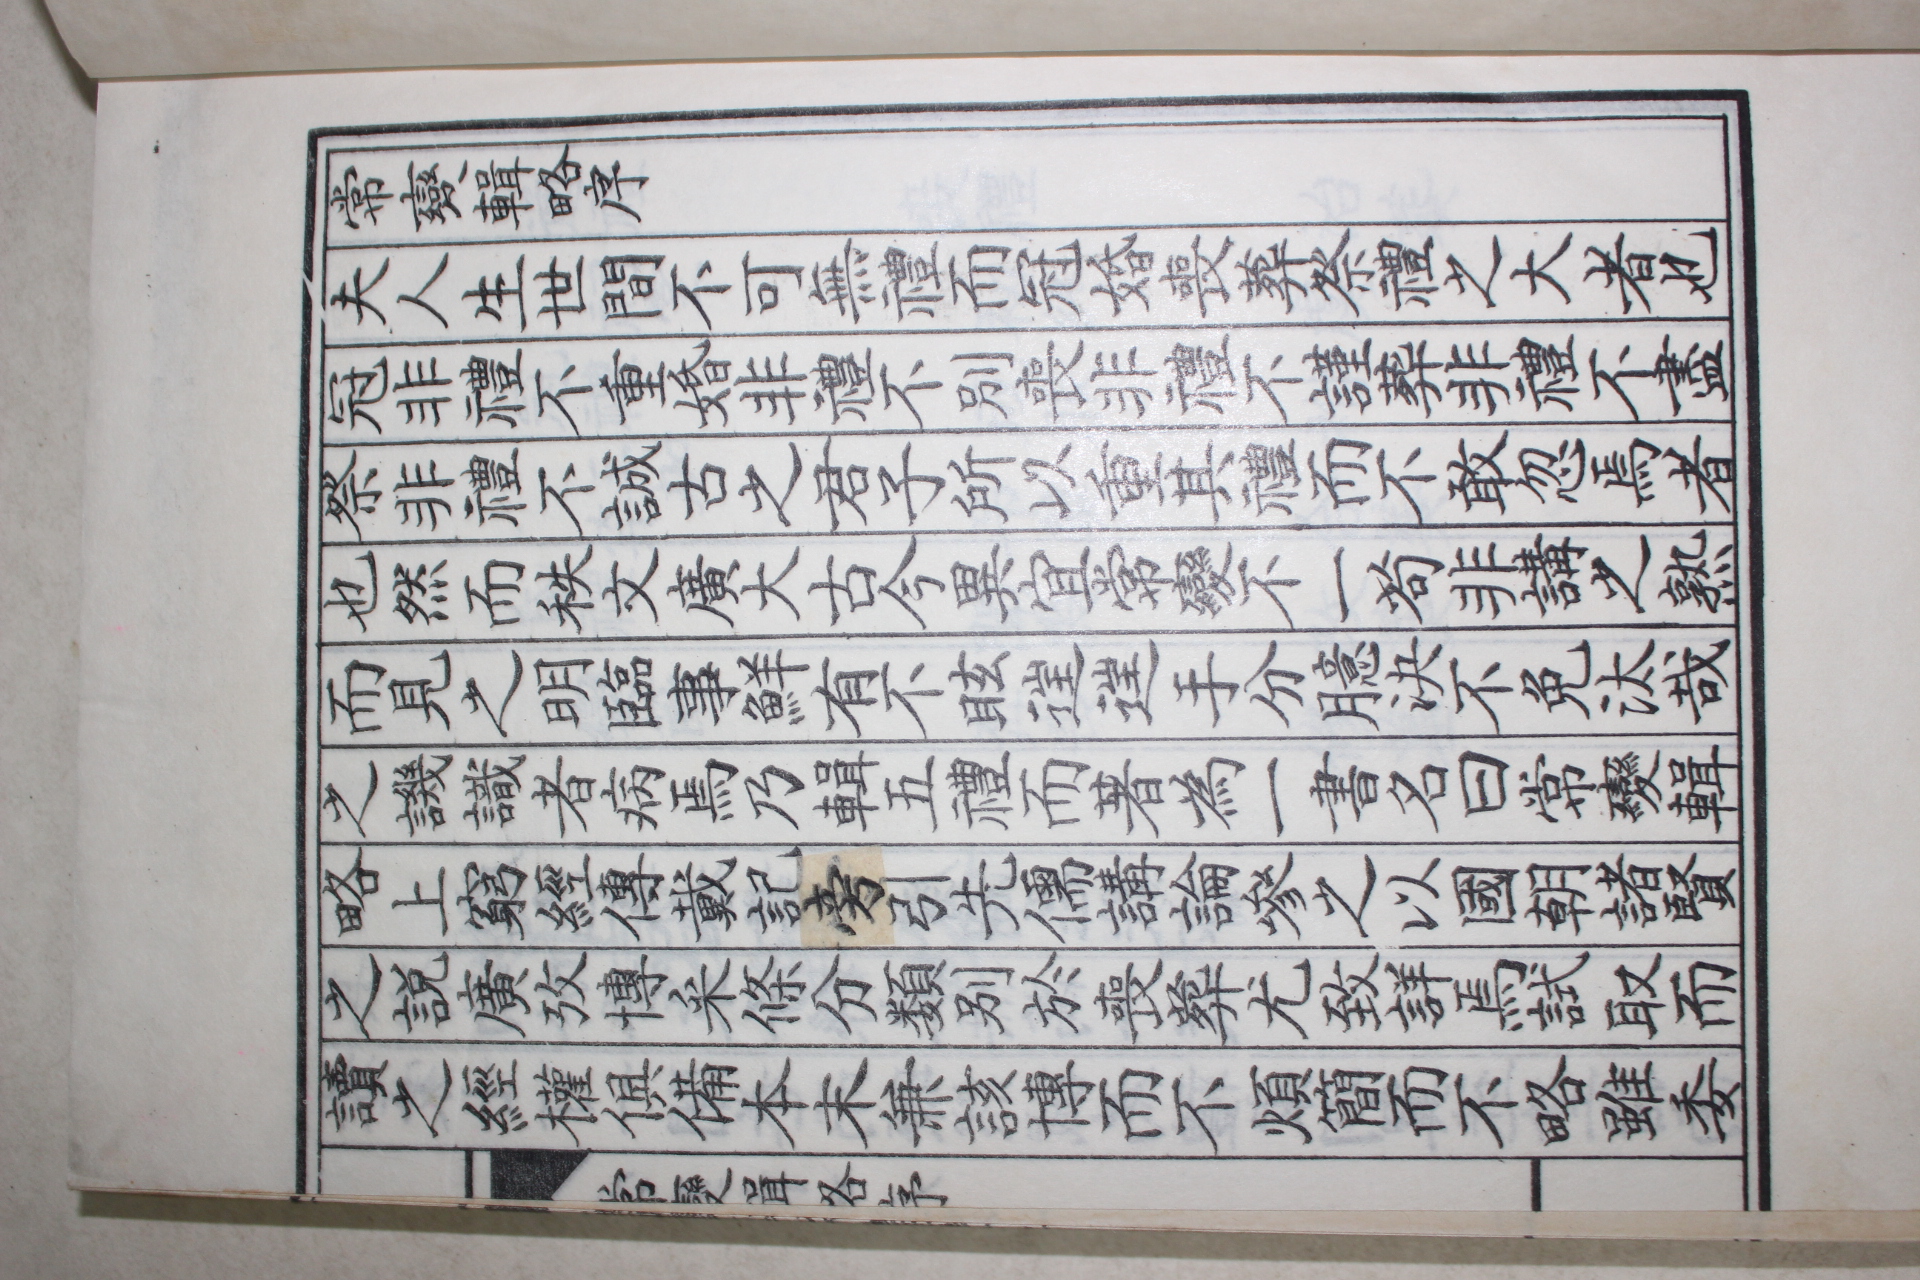 常變輯略序
夫人生世間不可無禮而冠婚喪葬祭禮之大者也
冠非禮不重婚非禮不別喪非禮不謹葬非禮不盡
祭非禮不誠古之君子所以重其禮而不敢忽焉者
也然而秩文廣大古今異宜常變不一苟非講之熟
而見之明臨事鮮有不眩逬逬手分臆決不免汰哉
之譏識者病焉乃輯五禮而著為一書名曰常變輯
略上窮經傳戴記旁引先儒講論參之以國朝諸賢
之説廣攷博采條分類別於喪葬尤致詳焉試取而
讀之經權俱備本末兼該博而不煩簡而不略雖委
常變輯略序